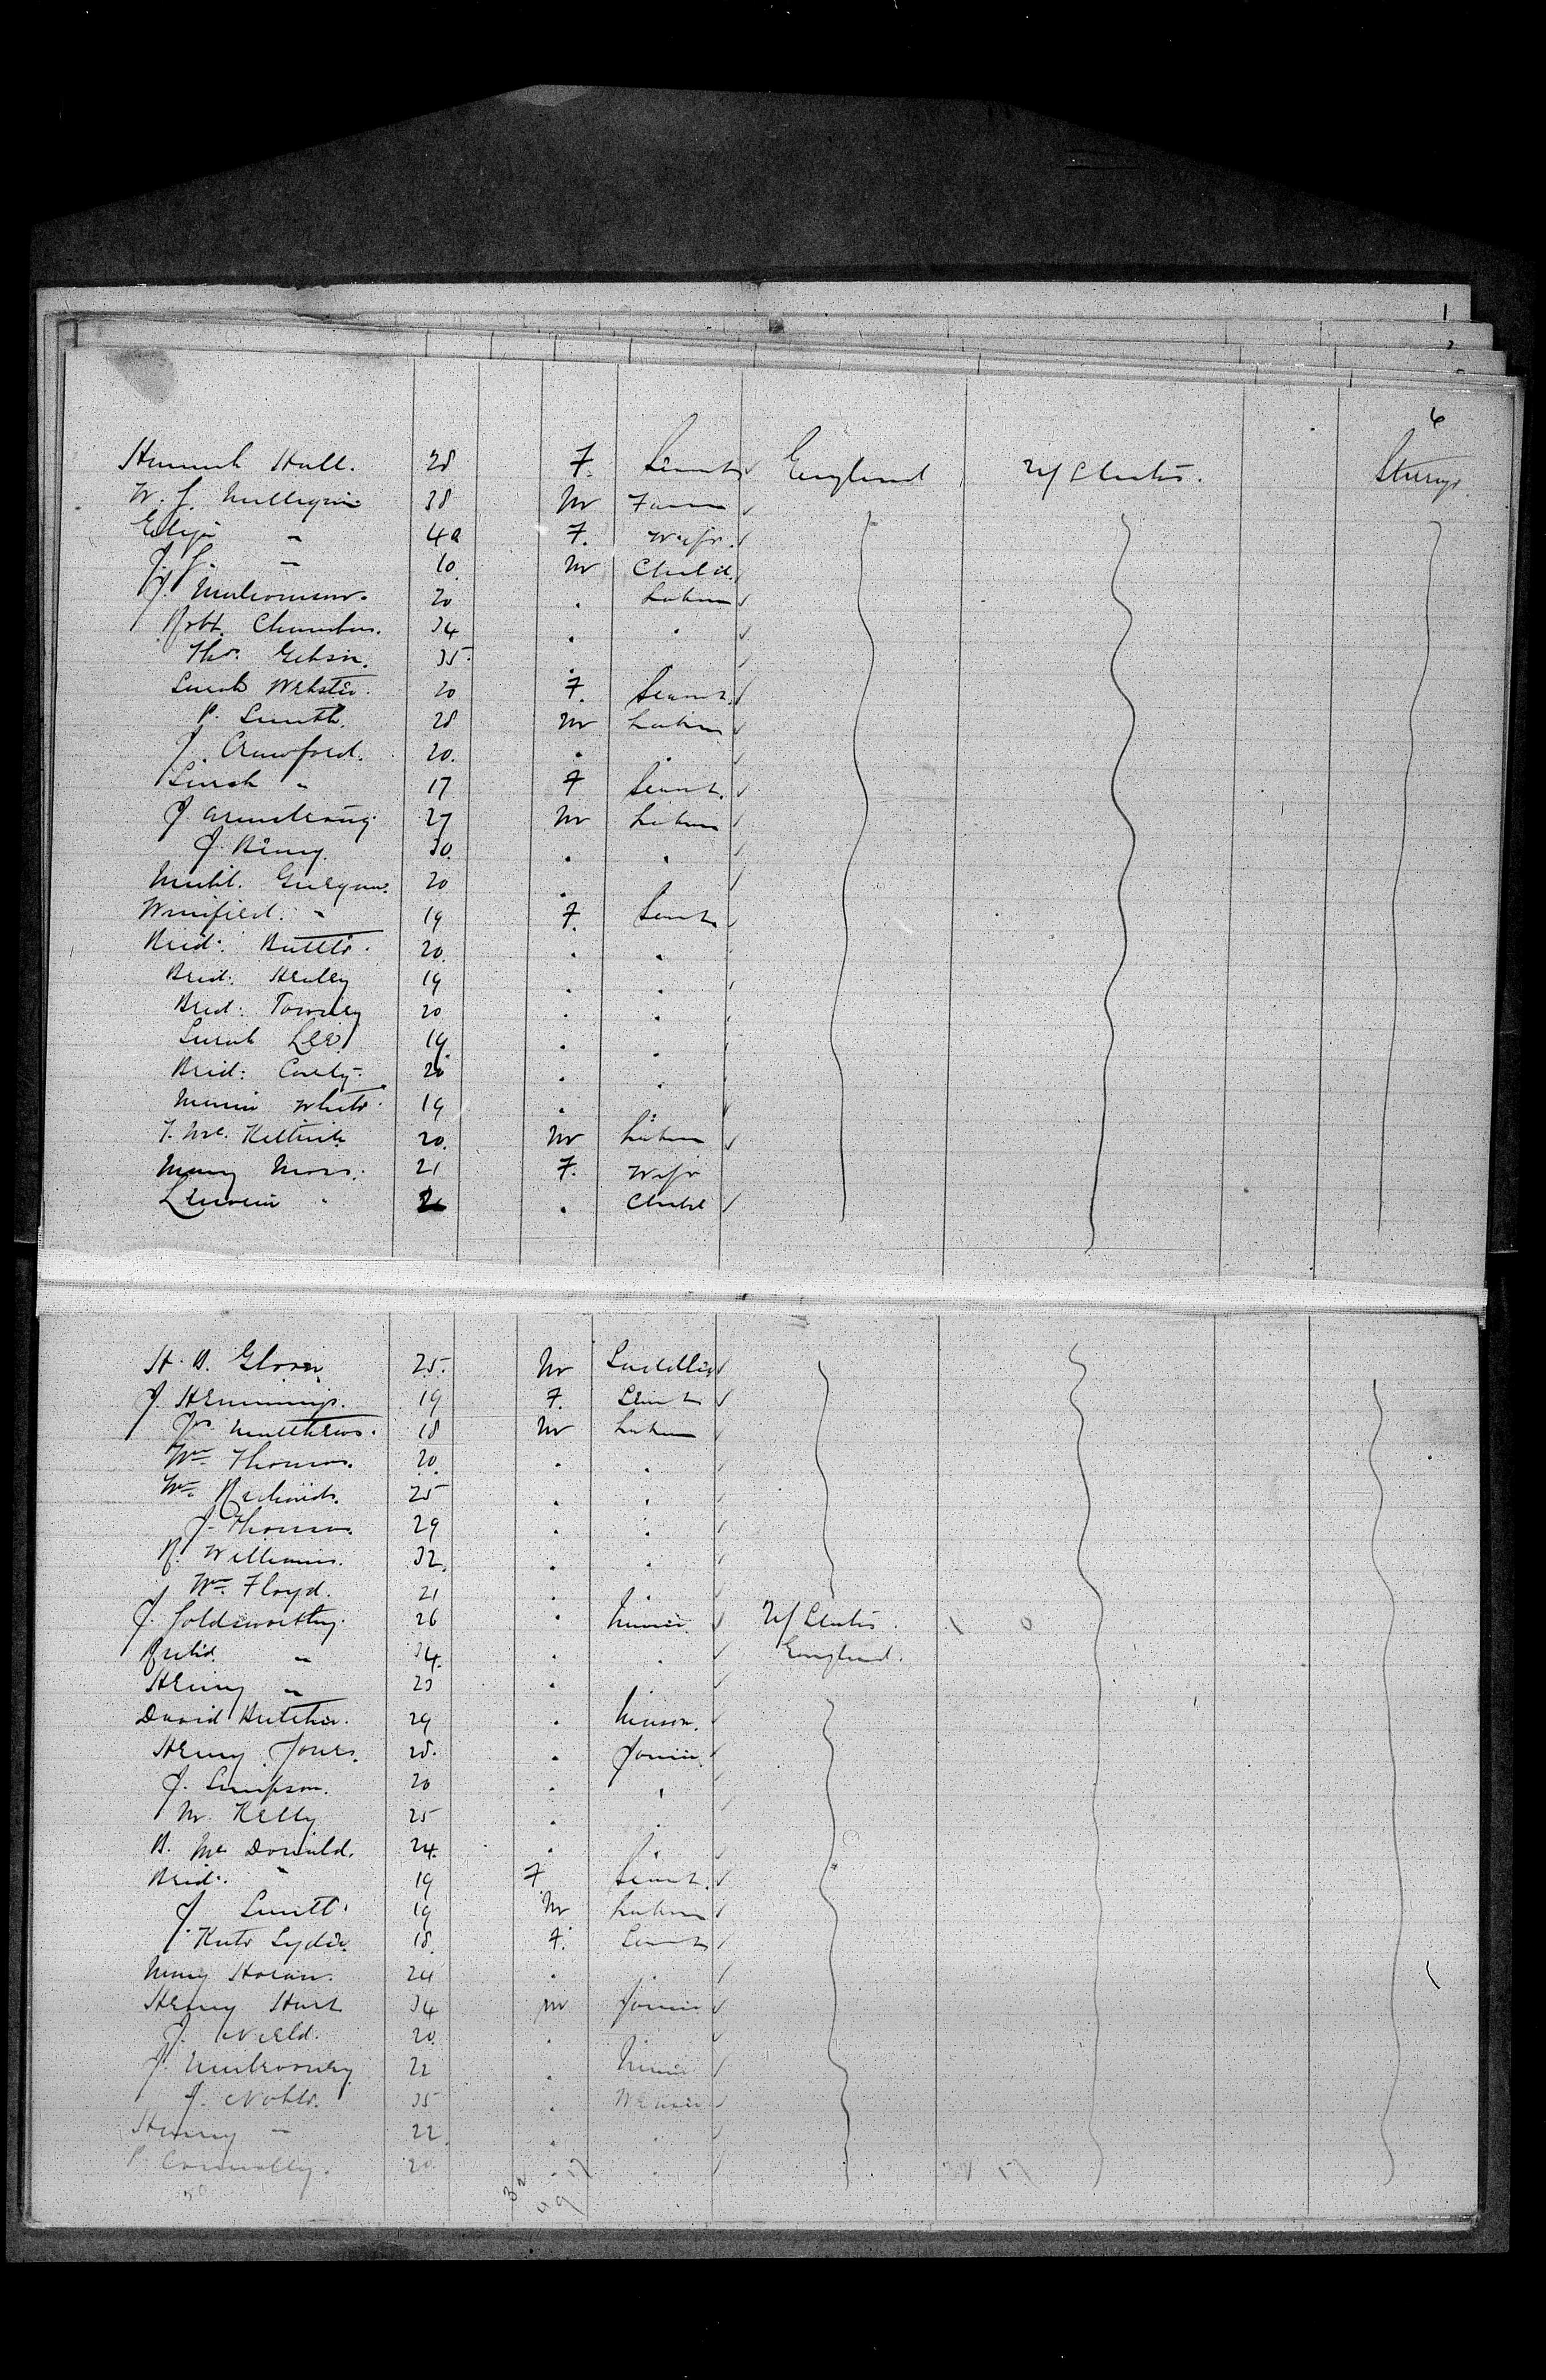 1
6
Hannah Hall. 28 F. Servt England U/States. Steerage
W. J. Milligan 38 M Farm
Eliza " 40 F. Wife.
J. J. " 10 M Child.
J. 20 . Labour
Robt. Chambers. 34 . .
Thos. Gibson. 35 .
Sarah Webster. 20 F. Servt.
P. Smith. 28 M Labour
J. Crawford. 20. . .
Sarah " 17 F Servt.
J Armstrong. 27 M Labour
J. Berry. 30. . .
20 .
Winifred. " 19 F. Servt
Brid: Butler. 20. . .
Brid: Healey 19 . .
Brid: Townley 20 . .
Sarah Lee 19. . .
Brid: 20 . .
Maria White. 19 . .
T. Mc. Kittrick 20. M Labour
Mary Moss. 21 F. Wife
" . Child
H. B. Glover 25. M Saddler
J. Hemmings. 19 F. Servt
Jas. Matthews. 18 M Labour
Wm. Thomas. 20. . .
Wm. Richards. 25 . .
J. Thomas. 29 . .
R. Williams. 32. . .
Wm. Floyd. 21 . .
J. Goldsworthy. 26 . Miner. U/States.
Richd. " 34. . . England.
Henry " 23 .
David Butcher. 29 . Mason.
Henry Jones. 28. . Joiner.
J. Simpson. 20 . .
M. Kelly 25 . .
B. Mc Donald. 24. . .
Brid:. " 19 F Servt.
J. Smith. 19 M Labour
Kate Lydia. 18. F. Servt
Mary Horan. 24 . .
Henry Hart 34 M Joiner
J. Nield. 20. .
J. Mulrooney 22 . Miner
J. Noble. 35 . Weaver
Henry " 22. . .
P. Connolly. 20. . .
32 17
49
32 17